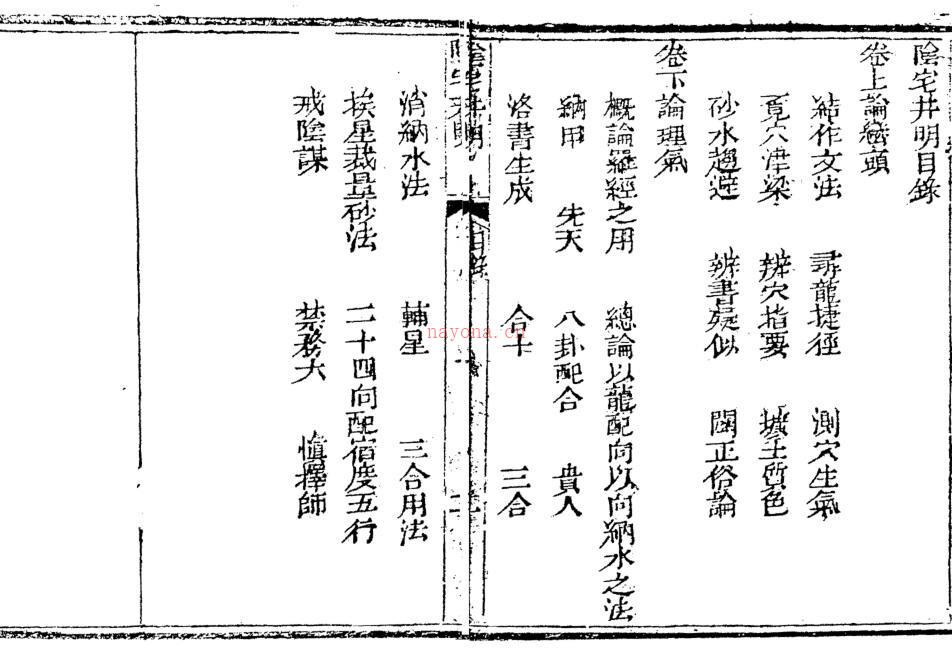 陰宅井明目錄
卷上論巒頭
結作文法 尋龍捷徑 測穴生氣
覓穴津梁 辨穴指要 壙土質色
砂水趨避 辨書疑似 闢正俗論
卷下論理氣
概論羅經之用 總論以龍配向以向納水之法
納甲 先天 八卦配合 貴人
洛書生成 合十 三合
目錄
消納水法 輔星 三合用法
挨星裁量砂法 二十四向配宿度五行
戒陰謀 禁務大 慎擇師
nayona.cn